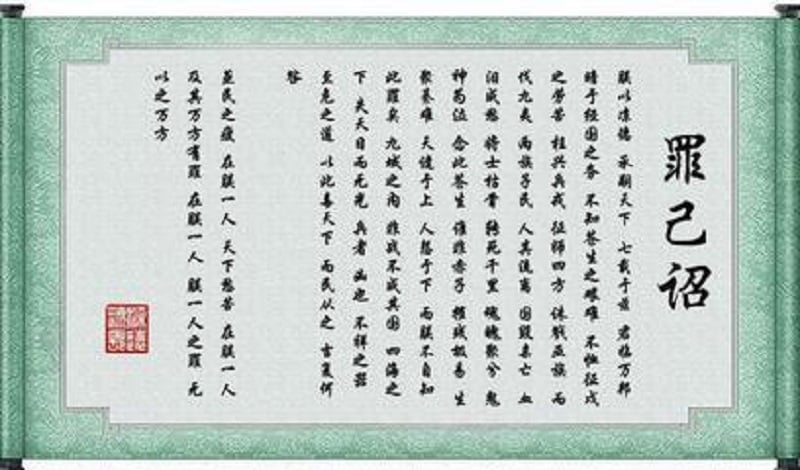 罪己诏
朕以凉德 承嗣天下 七载于兹 君临万邦
暗于经国之务 不知苍生之艰难 不恤征戍
之劳苦 枉兴兵戎 征师四方 诛戮巫族 而
伐九夷 两族子民 人其流离 国毁亲亡 血
泪成愁 将士枯骨 转死千里 魂魄聚兮 鬼
神为泣 念此苍生 谁非赤子 摧残极易 生
聚綦难 天谴于上 人怨于下 而朕不自知
此罪矣 九域之内 非战不成其国 四海之
下 失天目而无光 兵者 凶也 不祥之器
至危之道 以此毒天下 而民从之 吉复何
咎
民之疲 在朕一人 天下愁苦 在朕一人
及其万方有罪 在朕一人 朕一人之罪 无
以之万方